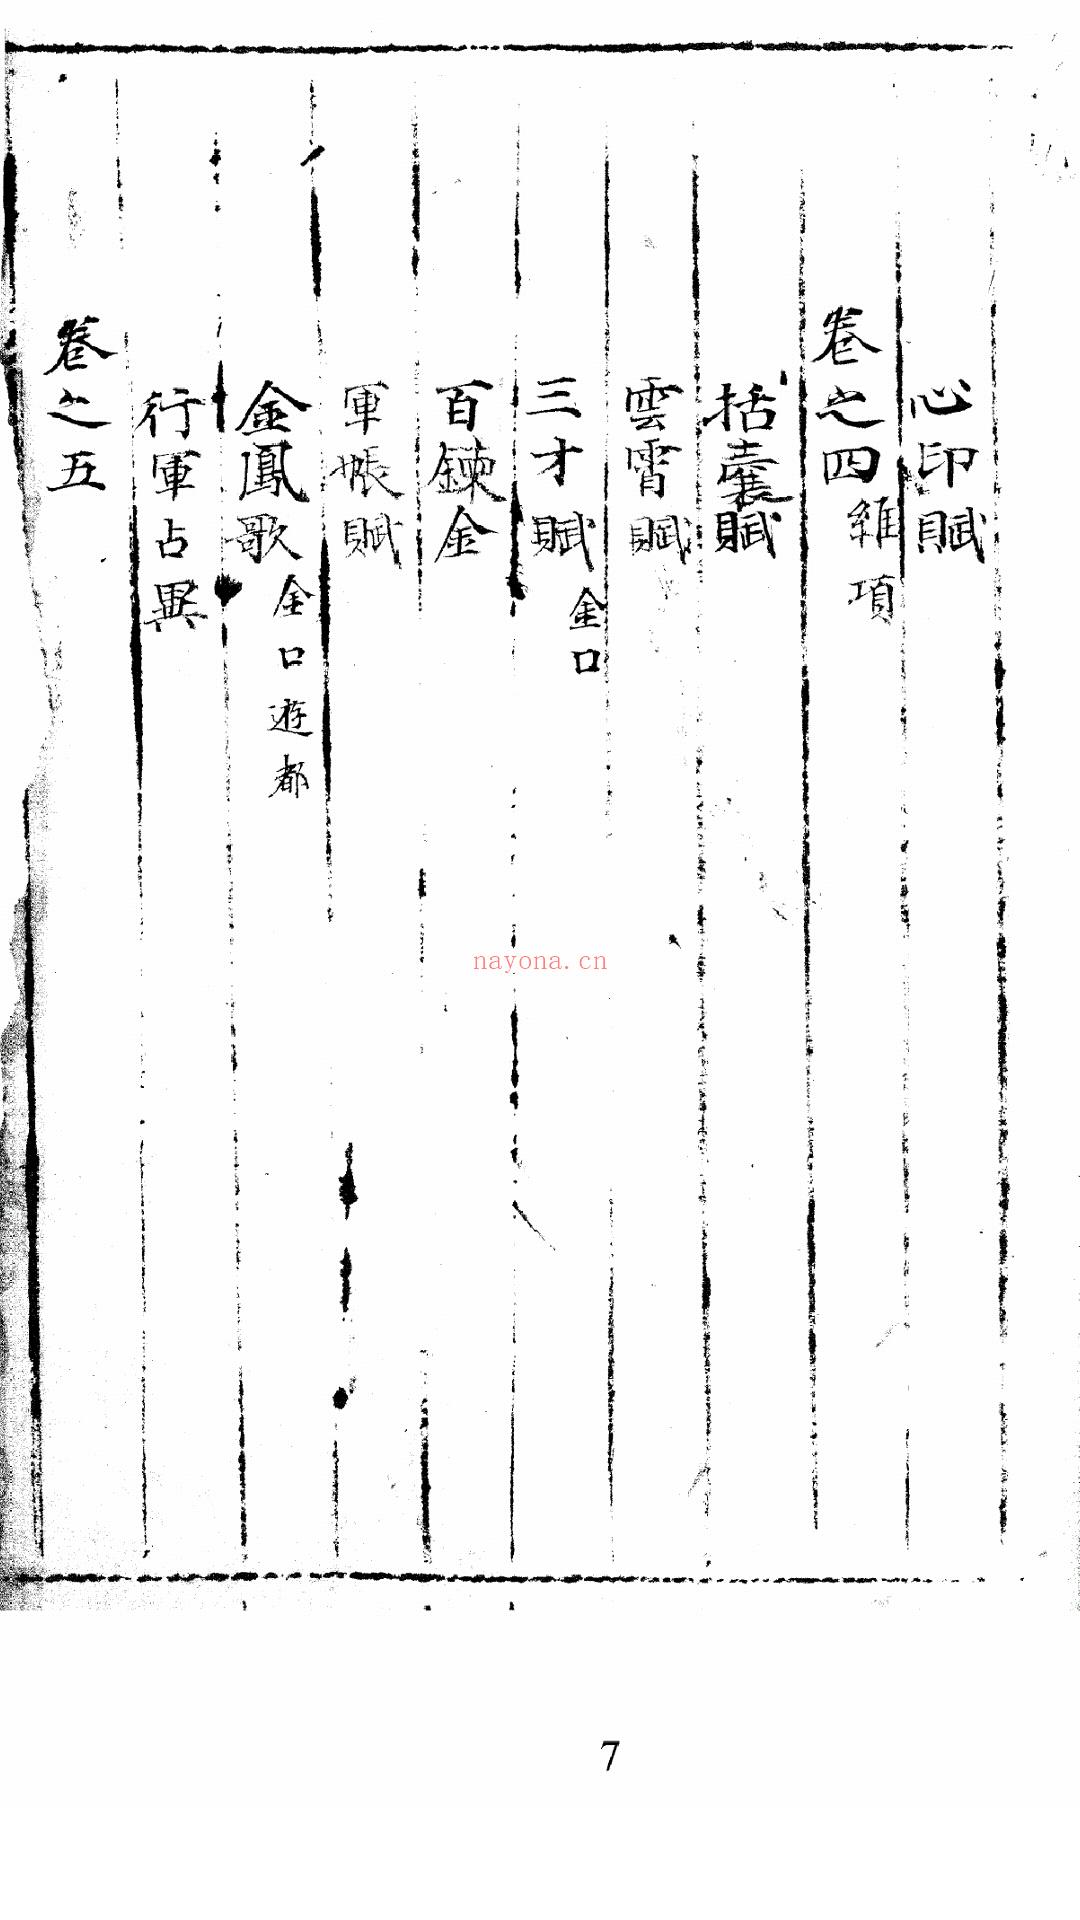 心印賦
卷之四 雜項
括囊賦
雲霄賦
三才賦 金口
百鍊金
軍帳賦
金鳳歌 金口遊都
行軍占異
卷之五
nayona.cn
7